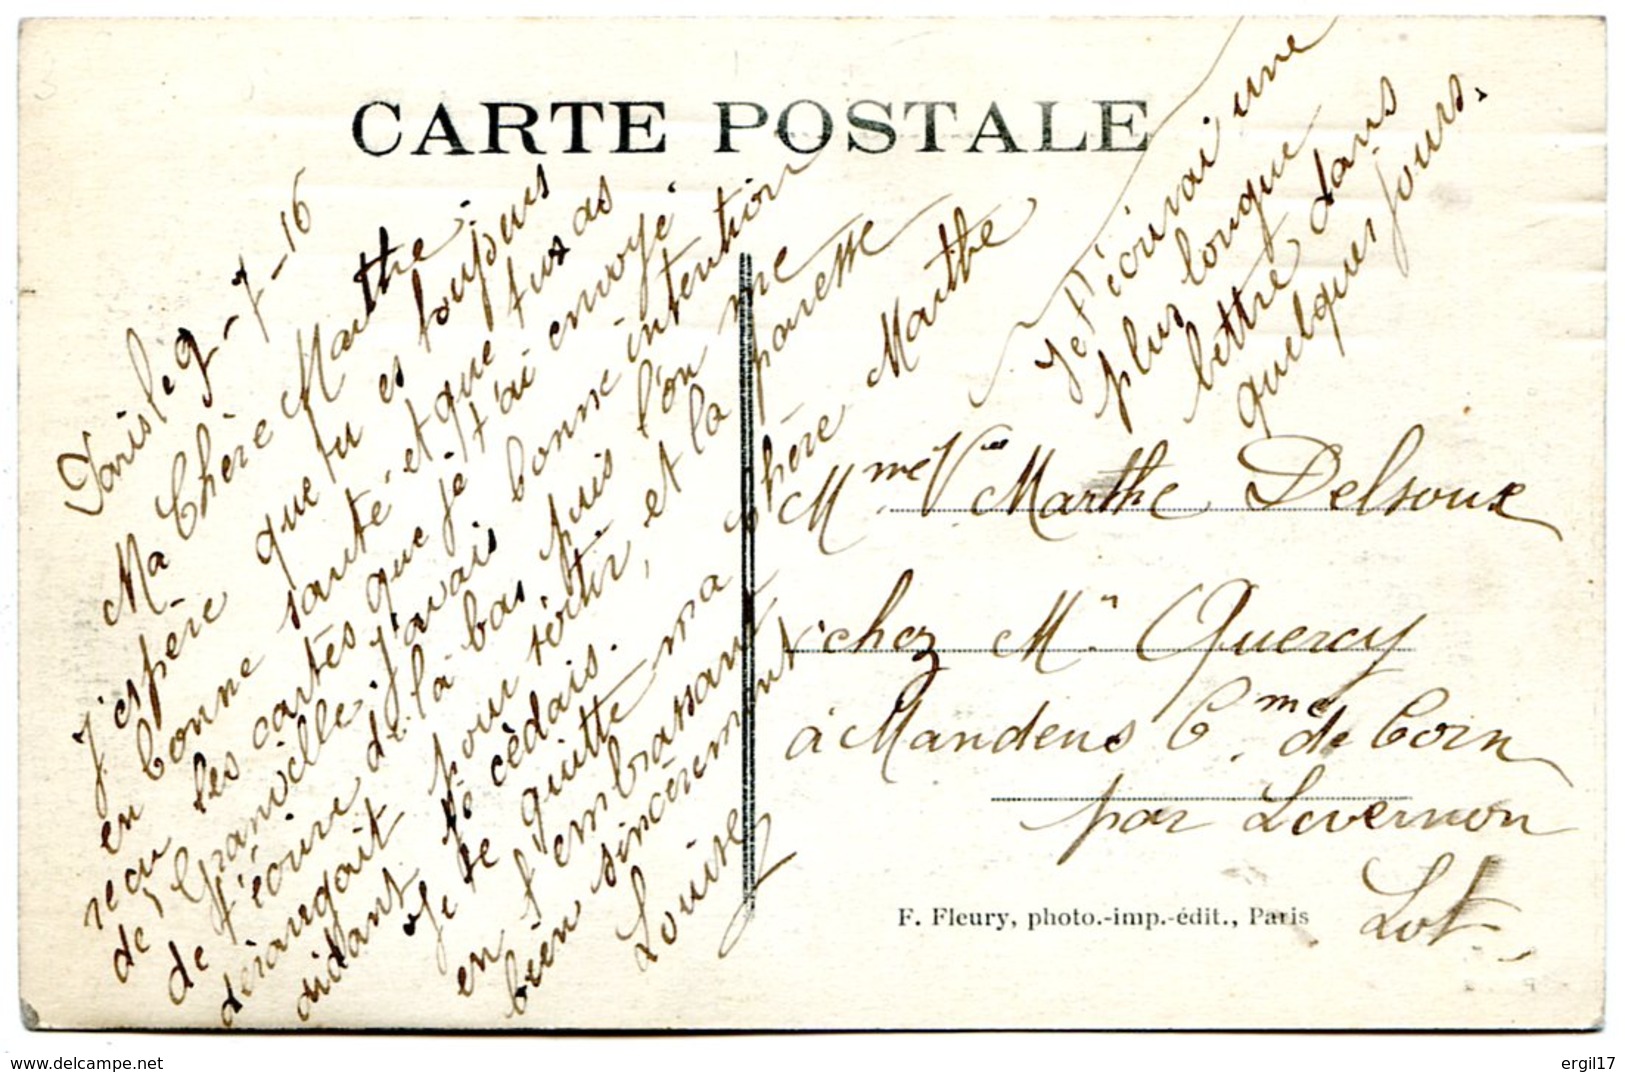 CARTE POSTALE
Paris le 9-7-16
Ma Chère Marthe
J'espère que tu es toujours
en bonne santé et que tu as
reçu les cartes que je t'ai envoyé
de Granville, j'avais bonne intention
de t'écrire de là-bas, puis l'on me
dérangait pour sortir, et la paresse
aidant, je cèdais.
Je te quitte ma chère Marthe
en t'embrassant
bien sincèrement
Louise
Je t'écrirai une
plus longue
lettre dans
quelques jours.
Mme Vve Marthe Delsoux
chez Mr Quercy
à Mandens Cme de Corn
par Livernon
Lot
F. Fleury, photo.-imp.-édit., Paris
ergil17